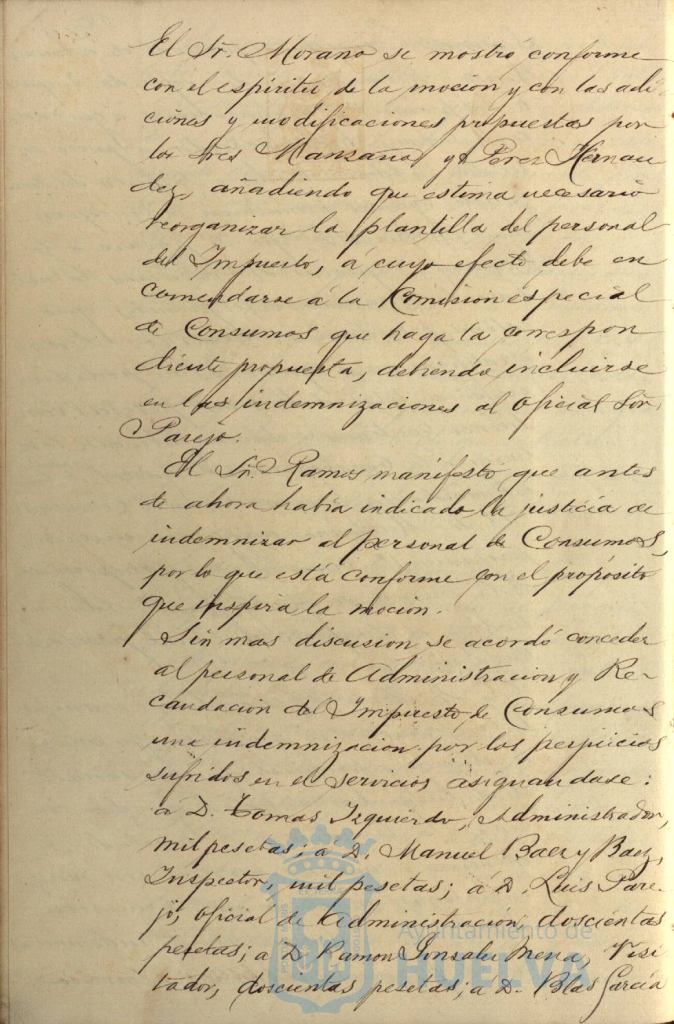 El Sr. Morano se mostró conforme
con el espíritu de la mocion y con las adi
ciones y modificaciones propuestas por
los Sres Manzano y Perez Hernan
dez, añadiendo que estima necesario
reorganizar la plantilla del personal
del Impuesto, á cuyo efecto debe en
comendarse á la Comision especial
de Consumos que haga la correspon
diente propuesta, debiendo incluirse
en las indemnizaciones al oficial Sñr.
Parejo.
El Sr. Ramos manifestó que antes
de ahora habia indicado la justicia de
indemnizar al personal de Consumos,
por lo que está conforme con el propósito
que inspira la mocion.
Sin mas discusion se acordó conceder
al personal de Administracion y Re-
caudación del Impuesto de Consumos
una indemnizacion por los perjuicios
sufridos en el servicios asignandose:
á D. Tomas Izquierdo, Administrador,
mil pesetas; á D. Manuel Baez y Baez,
Inspector, mil pesetas; á D. Luis Pare-
jo, oficial de Administración, doscientas
pesetas; a D. Ramon Gonzalez Mena, Visi
tador, doscientas pesetas; a D. Blas García
Ayuntamiento de
HUELVA